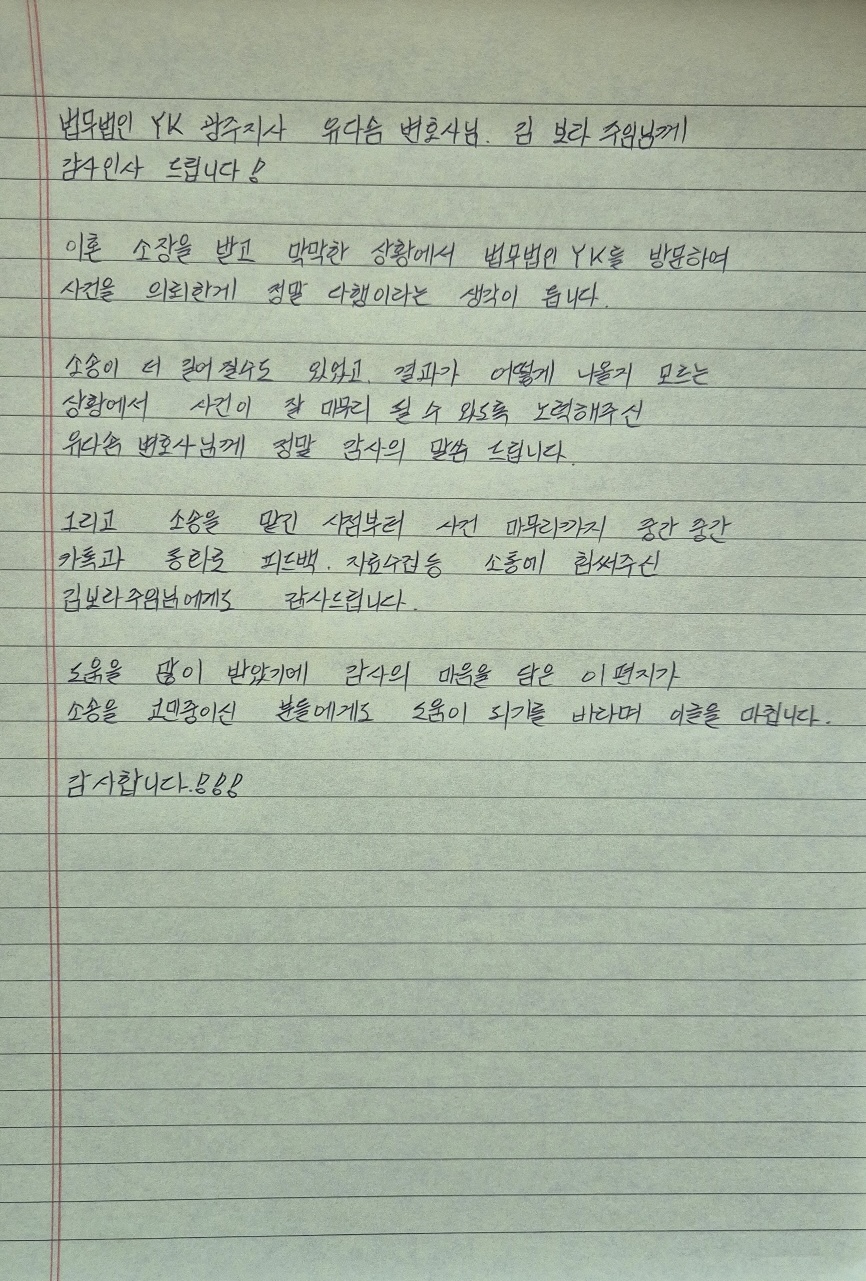 법무법인 YK 광주지사 유다솜 변호사님. 김 보라 주임님께
감사인사 드립니다!
이혼 소장을 받고 막막한 상황에서 법무법인 YK를 방문하여
사건을 의뢰한게 정말 다행이라는 생각이 듭니다.
소송이 더 길어 질수도 있었고, 결과가 어떻게 나올지 모르는
상황에서 사건이 잘 마무리 될 수 있도록 노력해주신
유다솜 변호사님께 정말 감사의 말씀 드립니다.
그리고 소송을 맡긴 시점부터 사건 마무리까지 중간 중간
카톡과 통화로 피드백. 자료수집 등 소통에 힘써주신
김보라 주임님에게도 감사드립니다.
도움을 많이 받았기에 감사의 마음을 담은 이 편지가
소송을 고민중이신 분들에게도 도움이 되기를 바라며 이글을 마칩니다.
감사합니다.!!!